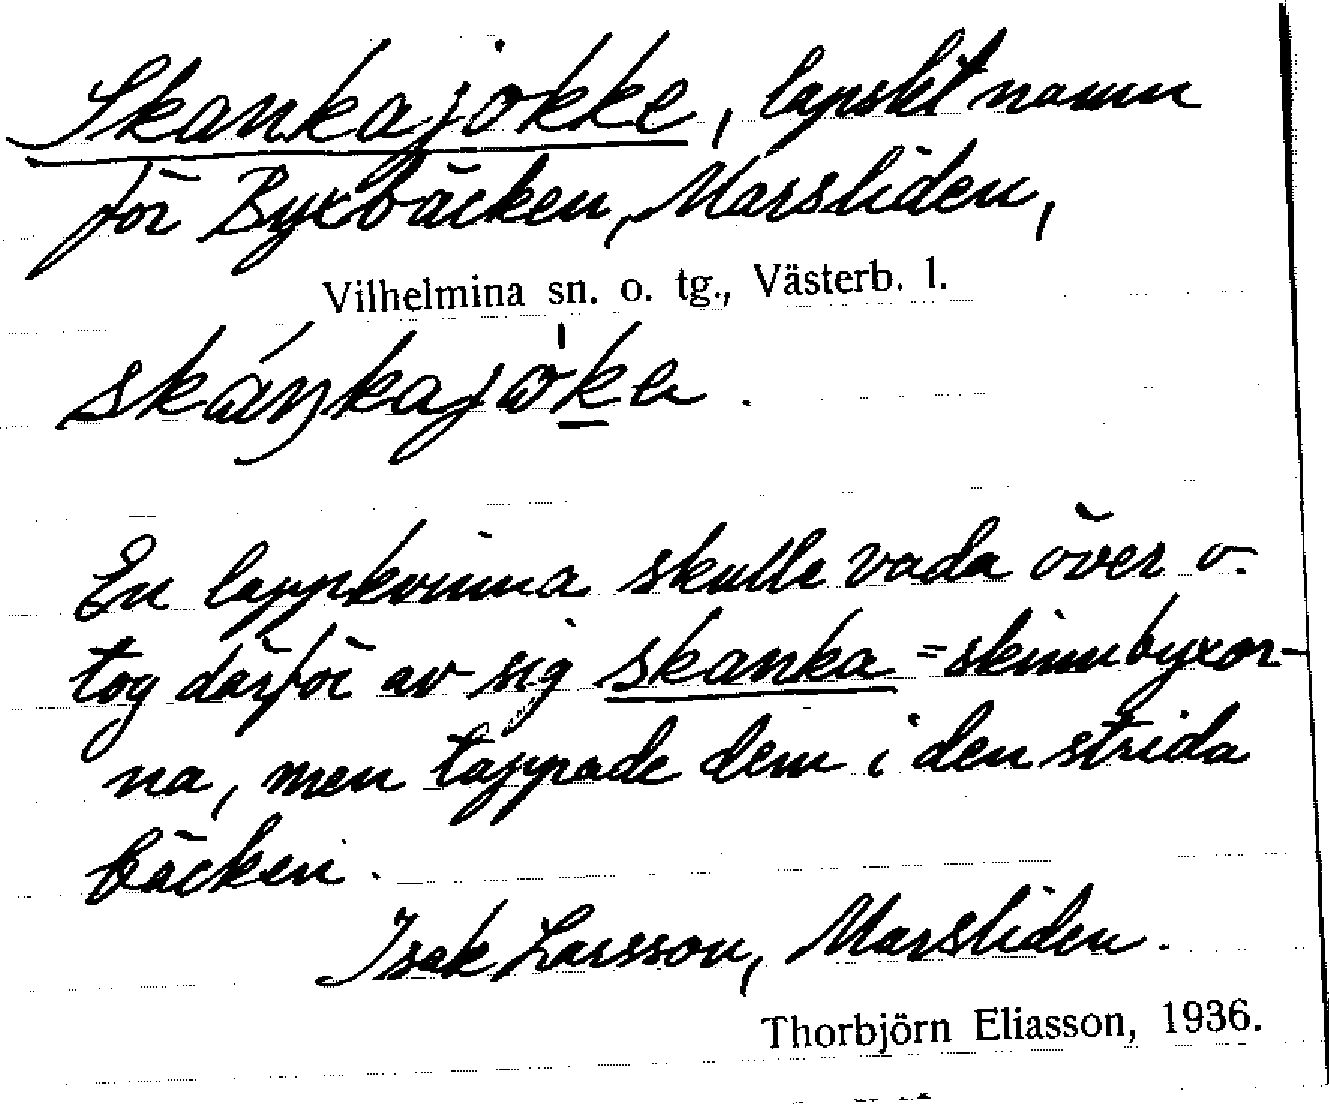 Skankajokke, lapskt namn
för Byxbäcken, Marsliden,
Vilhelmina sn. o. tg., Västerb. l.
skáŋkajo̍k̲a.
En lappkvinna skulle vada över o.
tog därför av sig skanka = skinnbyxor-
na, men tappade dem i den strida
bäcken.
Isak Larsson, Marsliden.
Thorbjörn Eliasson, 1936.